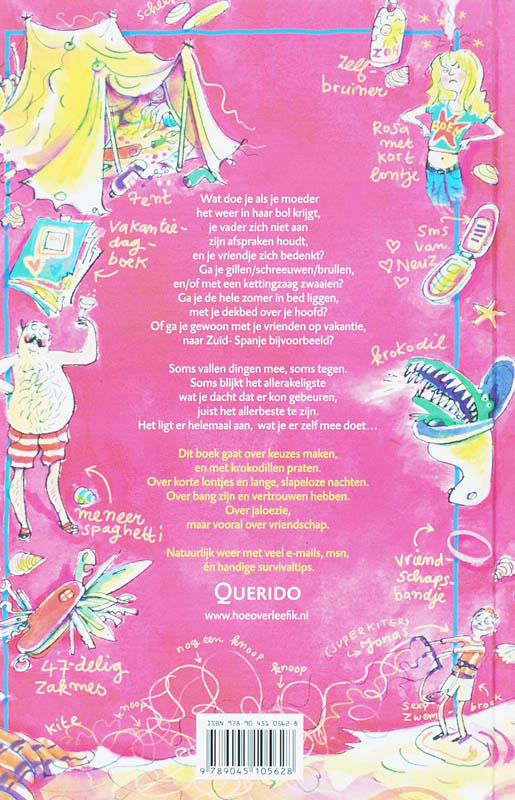 scheer
ZON
Zelf-
bruiner
BOEM
Rosa
met
kort
lontje
Tent
Vakantie-
dag-
boek
sms
van
Neuz
krokodil
meneer
spaghetti
Vriend-
schaps-
bandje
47-delig
zakmes
kite
(SUPERKITER)
Jonas
sexy
zwem
broek
nog een knoop
knoop
knoop
Wat doe je als je moeder
het weer in haar bol krijgt,
je vader zich niet aan
zijn afspraken houdt,
en je vriendje zich bedenkt?
Ga je gillen/schreeuwen/brullen,
en/of met een kettingzaag zwaaien?
Ga je de hele zomer in bed liggen,
met je dekbed over je hoofd?
Of ga je gewoon met je vrienden op vakantie,
naar Zuid- Spanje bijvoorbeeld?
Soms vallen dingen mee, soms tegen.
Soms blijkt het allerakeligste
wat je dacht dat er kon gebeuren,
juist het allerbeste te zijn.
Het ligt er helemaal aan, wat je er zelf mee doet...
Dit boek gaat over keuzes maken,
en met krokodillen praten.
Over korte lontjes en lange, slapeloze nachten.
Over bang zijn en vertrouwen hebben.
Over jaloezie,
maar vooral over vriendschap.
Natuurlijk weer met veel e-mails, msn,
én handige survivaltips.
QUERIDO
www.hoeoverleefik.nl
ISBN 978-90 451 0562-8
9 789045 105628